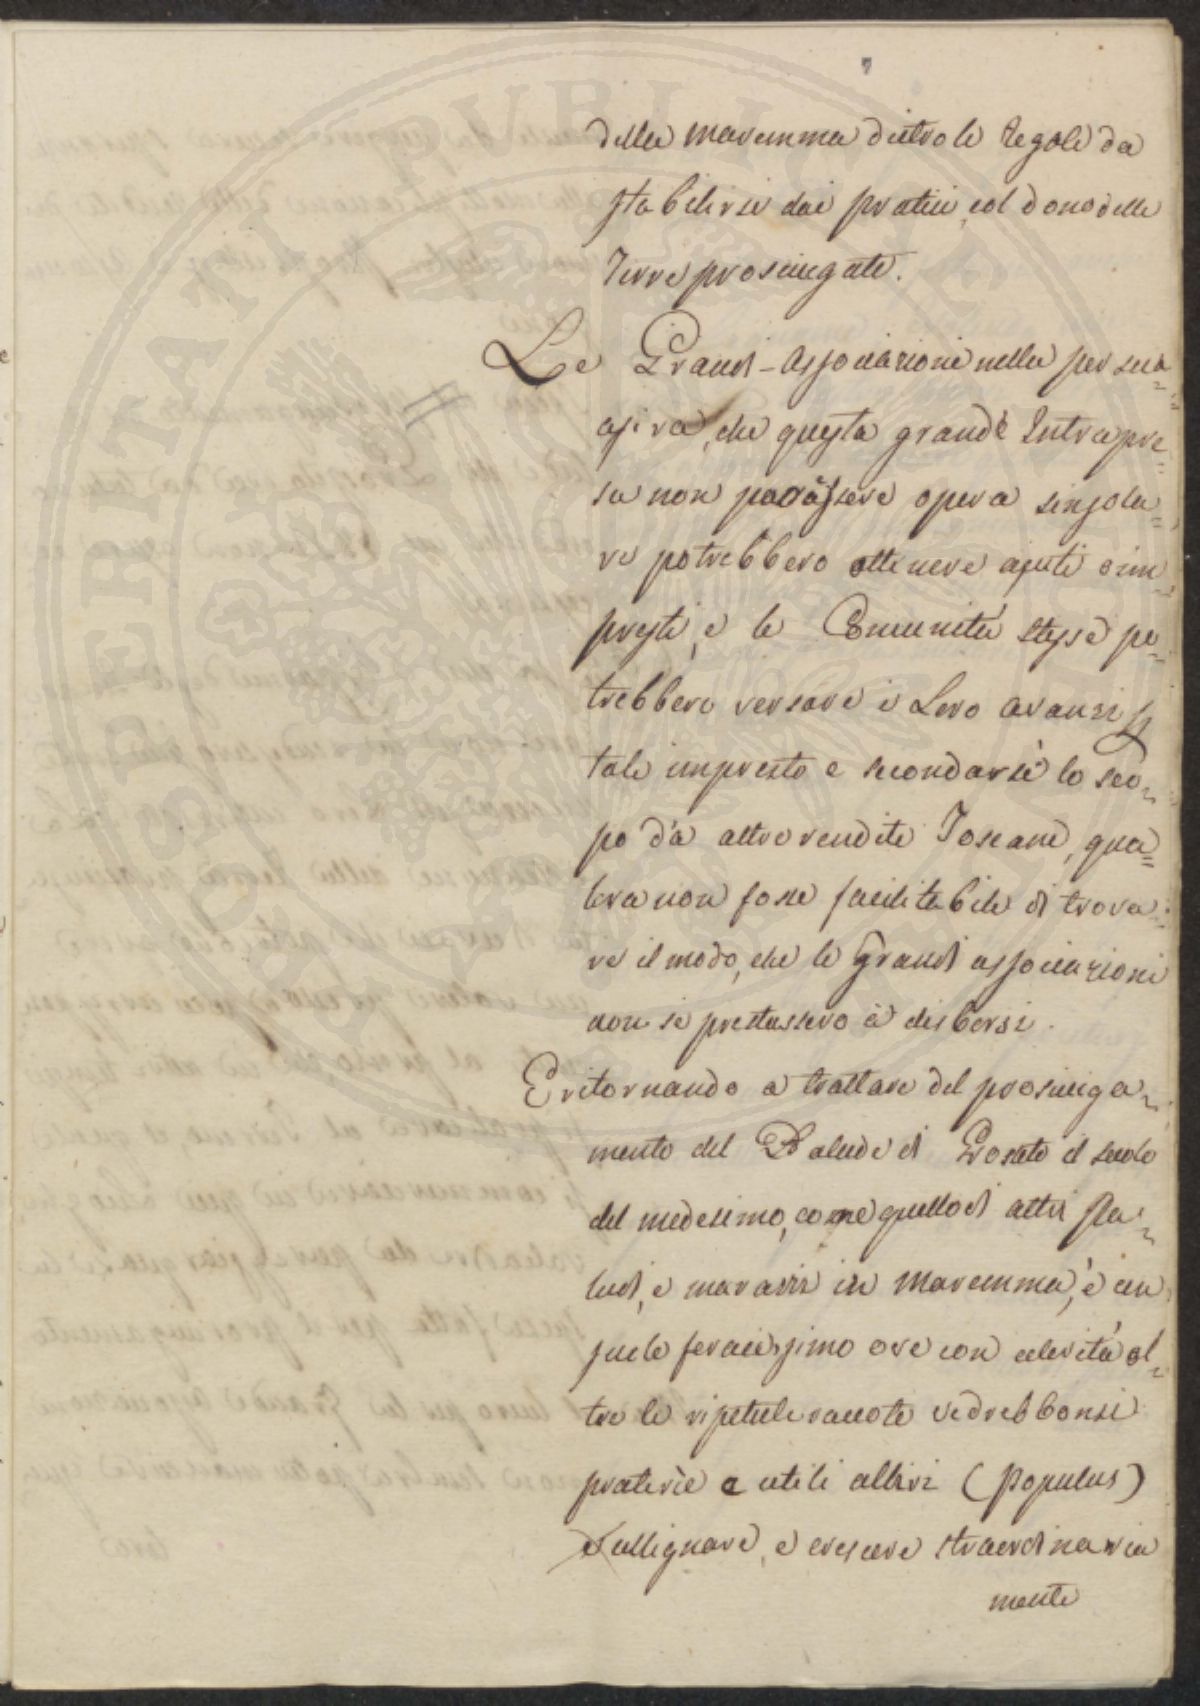 7
della maremma dietro le Regole da
stabilirsi dai pratici, col dono delle
Terre prosciugate.
Le Grandi-Associazione nella persua=
asiva, che questa grande Intrapre=
sa non può essere opera singola=
re potrebbero ottenere ajuti o im=
presti, e le Comunità stesse po=
trebbero versare i Loro avanzi
tale impresto e secondarsi lo sco=
po da altre rendite Toscane, qua=
lora non fosse facilitabile di trova=
re il modo, che le Grandi associazioni
non si prestassero a disborsi.
E ritornando a trattare del prosciuga=
mento del Palude di Grosseto il suolo
del medesimo, come quello di altri Pa=
ludi, e marazzi in Maremma, è un
suolo feracissimo ove con celerità ol=
tre le ripetute raccolte vedrebbonsi
praterie e utili alberi (Populus)
allignare, e crescere straordinaria
mente